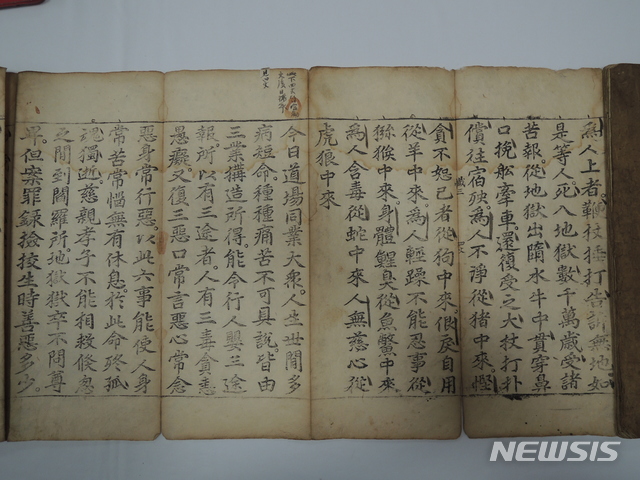 為人上者鞭杖捶打告訴無地如
是等人死入地獄數千萬歲受諸
苦報從地獄出墮水牛中貫穿鼻
口挽船牽車還復受之大杖打扑
償往宿殃為人不淨從猪中來慳
貪不恕己者從狗中來佷戾自用
從羊中來為人輕躁不能忍事從
獼猴中來身體鯹臭從魚鱉中來
為人含毒從蛇中來人無慈心從
虎狼中來
今日道場同業大衆人生世間多
病短命種種痛苦不可具說皆由
三業構造所得能令行人嬰三途
報所以有三途者人有三毒貪恚
愚癡又復三惡口常言惡心常念
惡身常行惡以此六事能使人身
常苦常惱無有休息於此命終孤
魂獨逝慈親孝子不能相救倏忽
之間到閻羅所地獄獄卒不問尊
卑但案罪錄撿挍生時善惡多少
NEWSIS